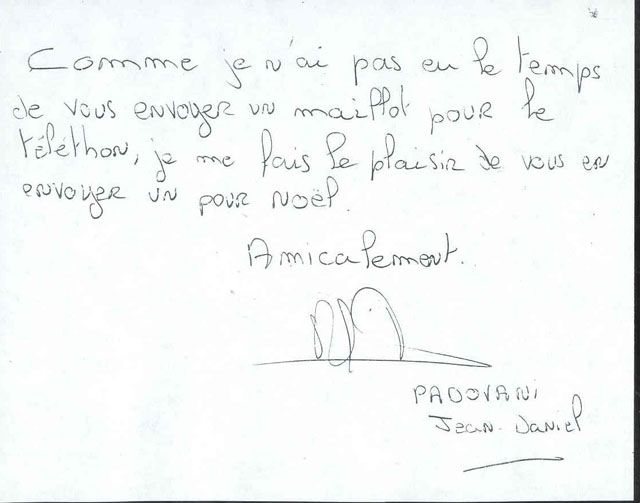 Comme je n'ai pas eu le temps
de vous envoyer un maillot pour le
téléthon, je me fais le plaisir de vous en
envoyer un pour Noël.
Amicalement.
PADOVANI
Jean-Daniel